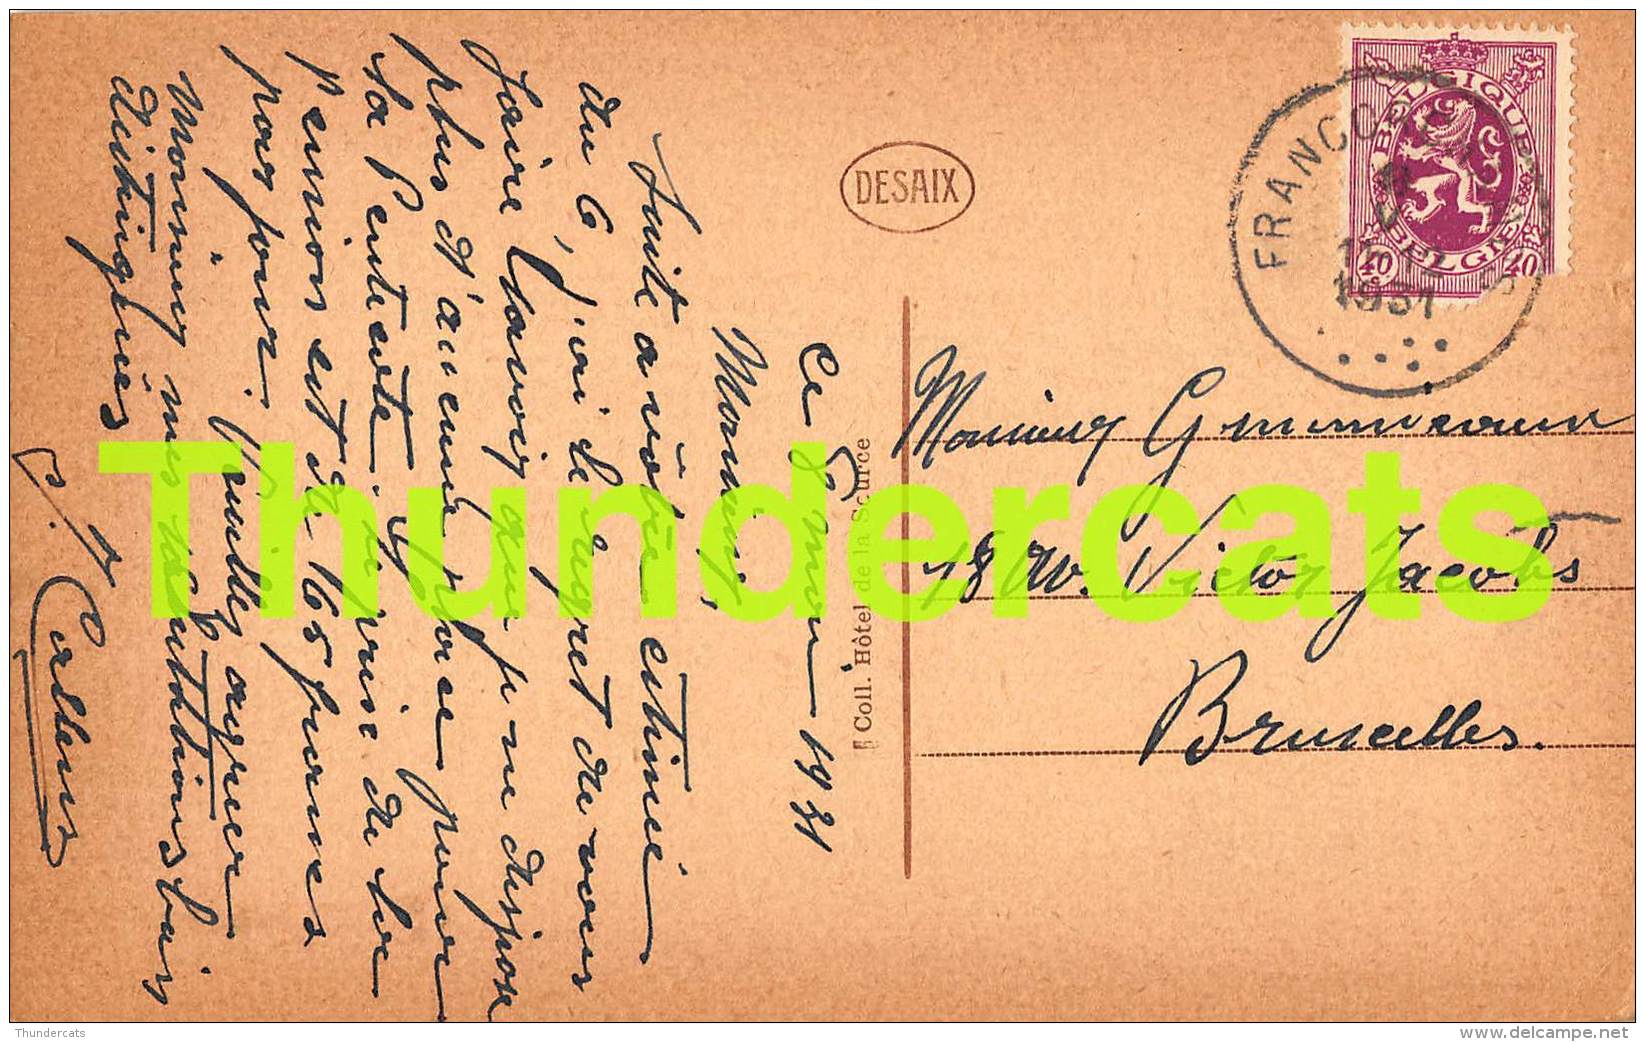 Ce 8 mai 1931
Monsieur,
Suite à vôtre estimée
du 6, j'ai le regret de vous
faire savoir que je ne dispose
plus d'aucune place pour
la Pentecôte. Le prix de la
pension est de 65 francs
par jour.
Veuillez agréer
Monsieur mes salutations bien
distinguées
DESAIX
Coll. Hôtel de la Source
FRANCOR
1931
BELGIQUE
BELGIË
40 c 40 c
Monsieur
18 Av. Victor Jacobs
Bruxelles.
Thundercats
Thundercats
www.delcampe.net